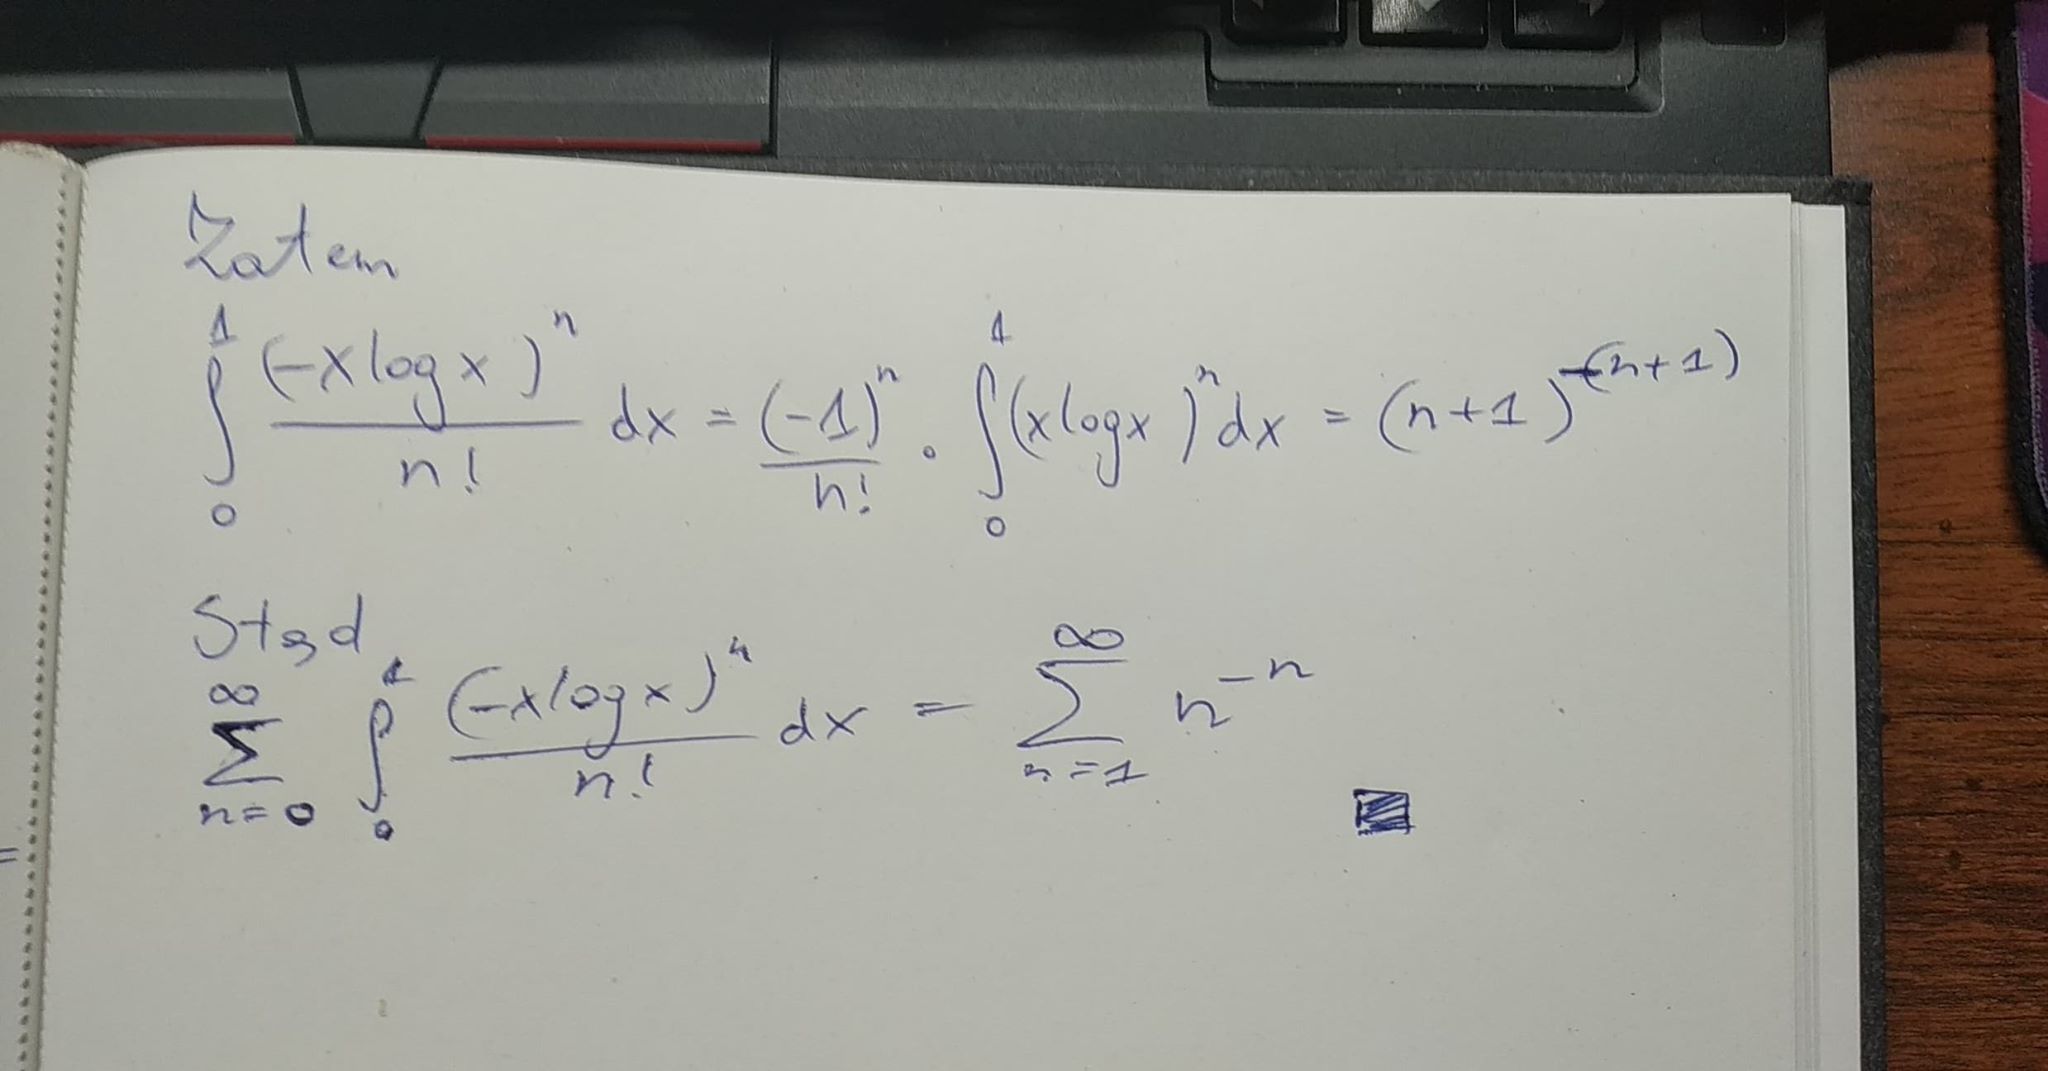 Zatem
∫₀¹ (-x log x)ⁿ / n! dx = (-1)ⁿ / n! · ∫₀¹ (x log x)ⁿ dx = (n+1)^-(n+1)
Stąd
∑_{n=0}^∞ ∫₀¹ (-x log x)ⁿ / n! dx = ∑_{n=1}^∞ n^-n
=